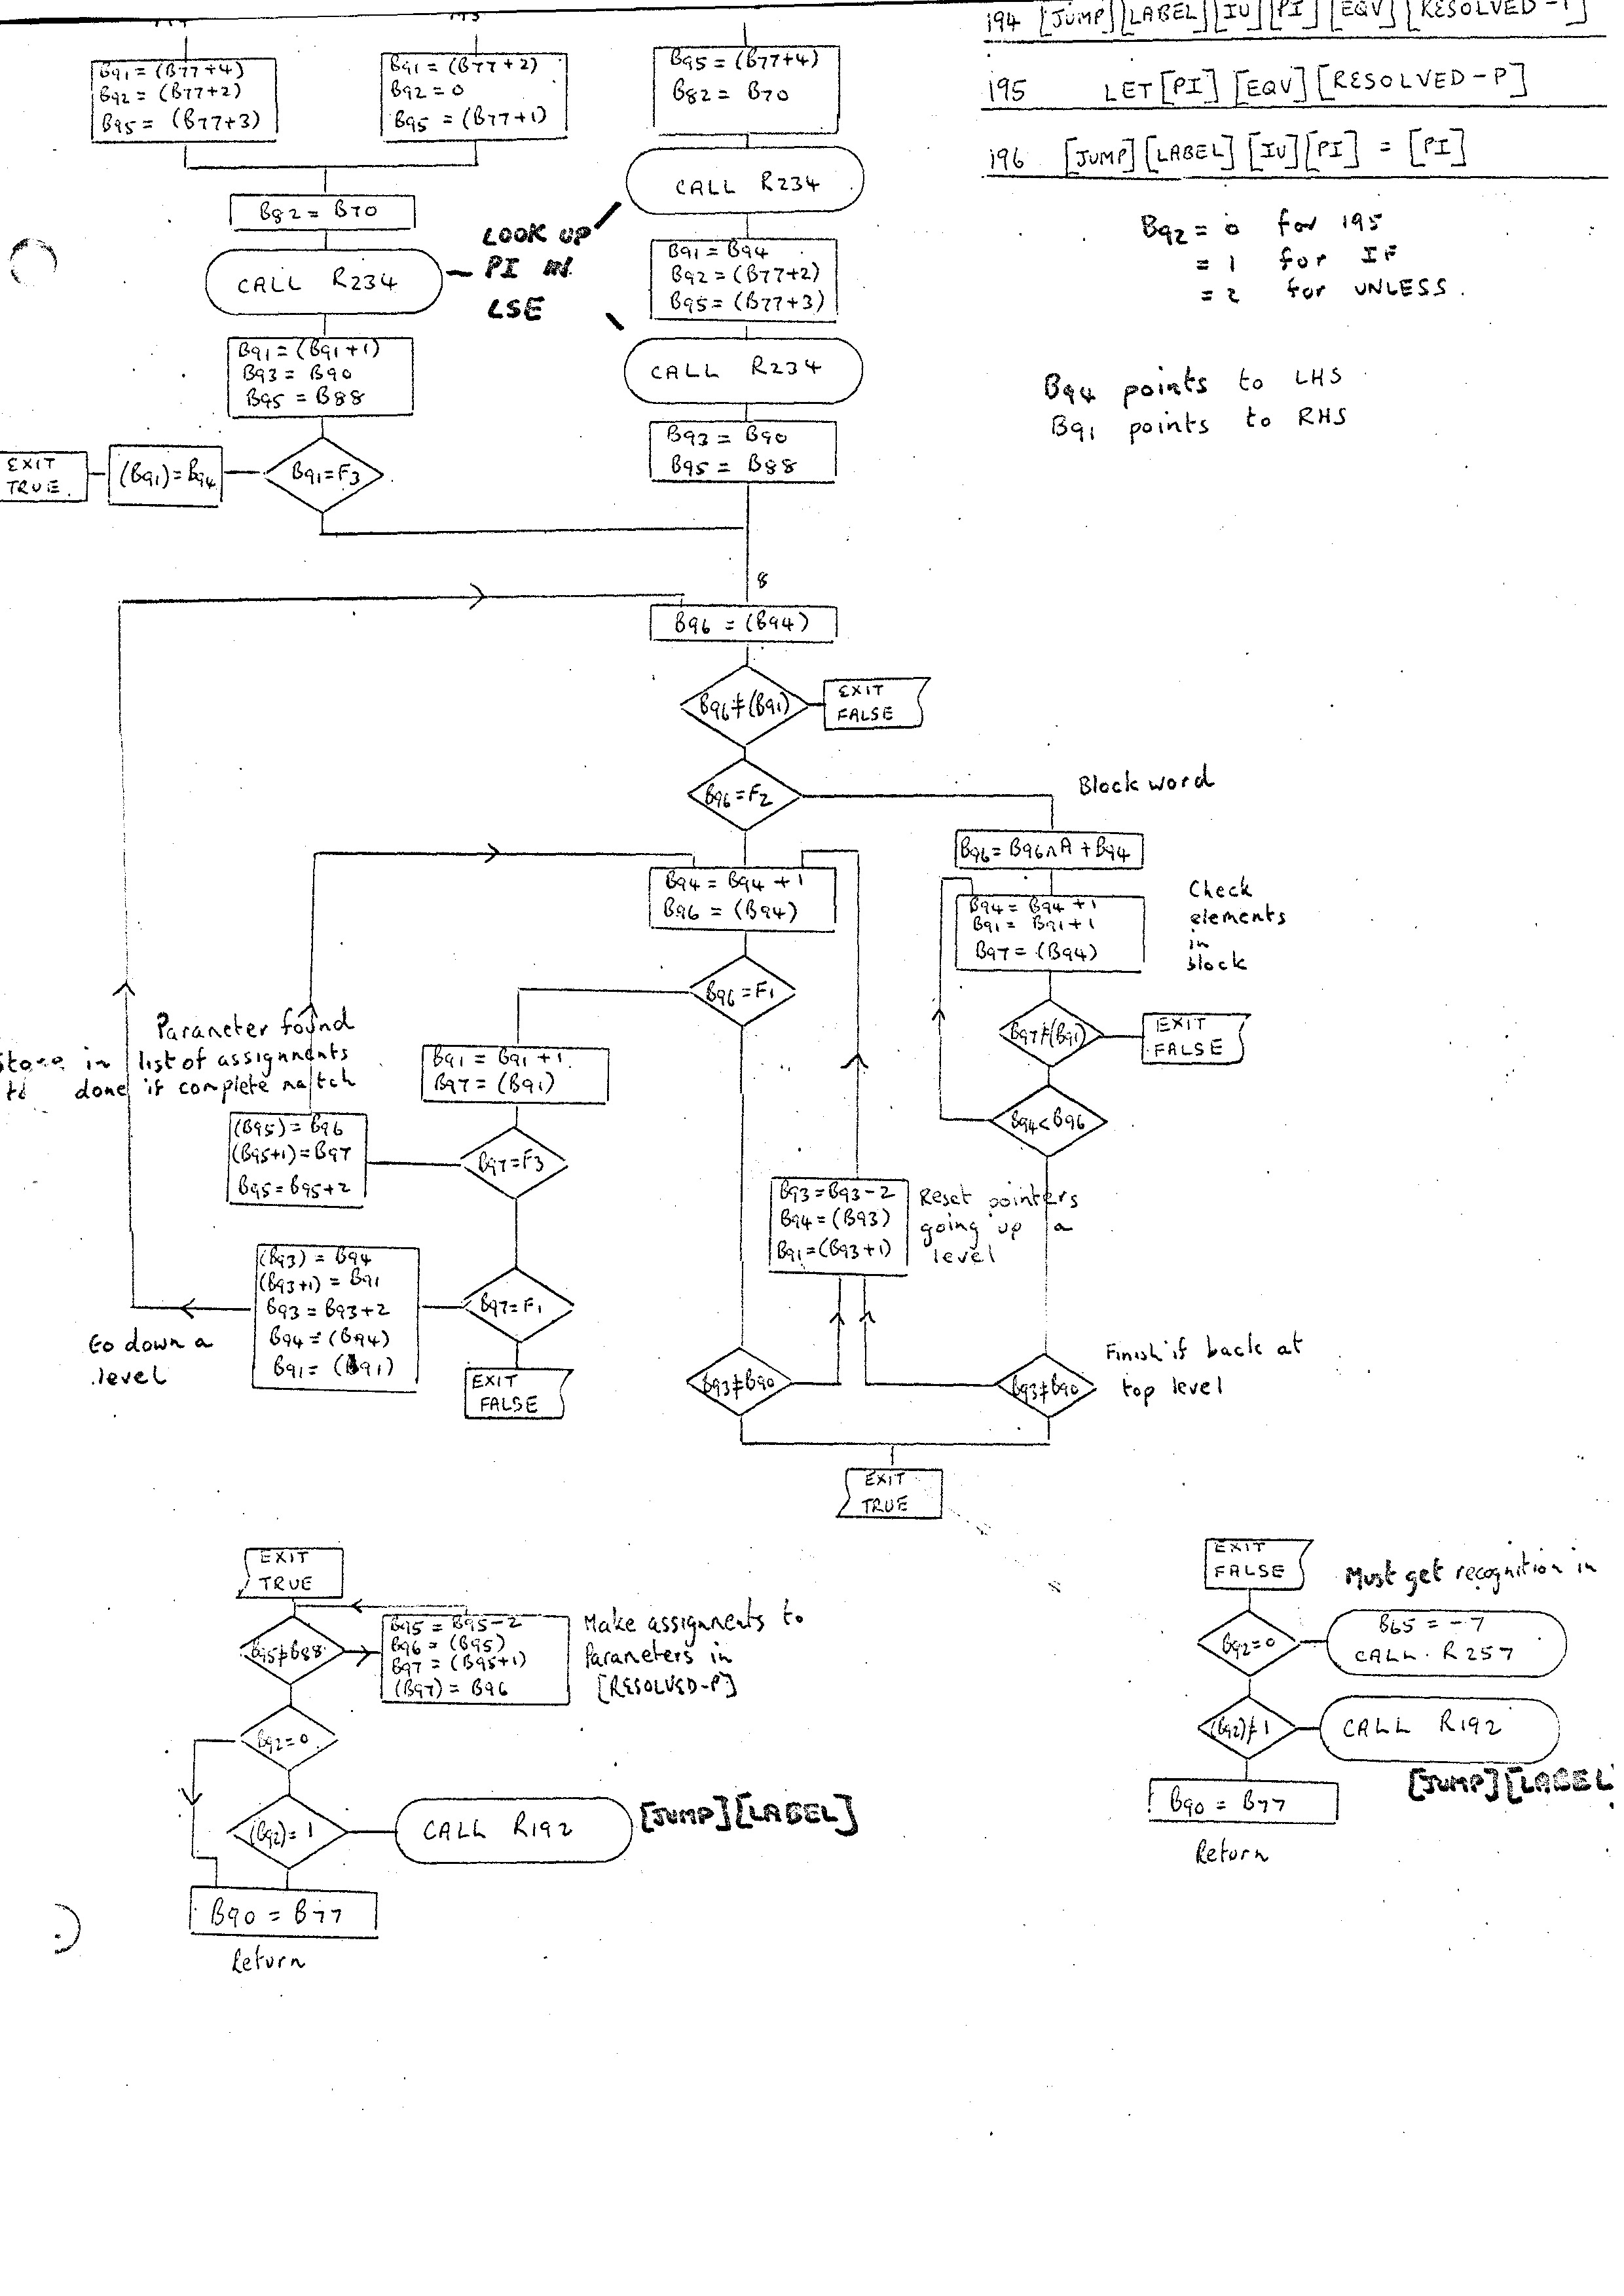 194 [JUMP][LABEL][IU][PI][EQV][RESOLVED-P]
195 LET[PI][EQV][RESOLVED-P]
196 [JUMP][LABEL][IU][PI] = [PI]
B92 = 0 for 195
= 1 for IF
= 2 for UNLESS.
B94 points to LHS
B91 points to RHS
B91 = (B77+4)
B92 = (B77+2)
B95 = (B77+3)
B91 = (B77+2)
B92 = 0
B95 = (B77+1)
B95 = (B77+4)
B82 = B70
B82 = B70
CALL R234
LOOK UP
PI IN
LSE
CALL R234
B91 = B94
B92 = (B77+2)
B95 = (B77+3)
CALL R234
B91 = (B91+1)
B93 = B90
B95 = B88
B93 = B90
B95 = B88
B91=F3
(B91)=B94
EXIT
TRUE
8
B96 = (B94)
B96≠(B91)
EXIT
FALSE
B96=F2
Block word
B96=B96∧A+B94
B94 = B94+1
B91 = B91+1
B97 = (B94)
Check
elements
in
block
B97≠(B91)
EXIT
FALSE
B94<B96
B94 = B94+1
B96 = (B94)
B96=F1
Parameter found
in list of assignments
done if complete match
B91 = B91+1
B97 = (B91)
B97=F3
(B95)=B96
(B95+1)=B97
B95=B95+2
B97=F1
(B93) = B94
(B93+1) = B91
B93 = B93+2
B94 = (B94)
B91 = (B91)
Go down a
level
EXIT
FALSE
B93=B93-2
B94=(B93)
B91=(B93+1)
Reset pointers
going up a
level
B93≠B90
B93≠B90
Finish if back at
top level
EXIT
TRUE
EXIT
TRUE
B95≠B88
B95 = B95-2
B96 = (B95)
B97 = (B95+1)
(B97) = B96
Make assignments to
Parameters in
[RESOLVED-P]
B92=0
(B92)=1
CALL R192
[JUMP][LABEL]
B90 = B77
Return
EXIT
FALSE
Must get recognition in
B92=0
B65 = -7
CALL R257
(B92)≠1
CALL R192
[JUMP][LABEL
B90 = B77
Return